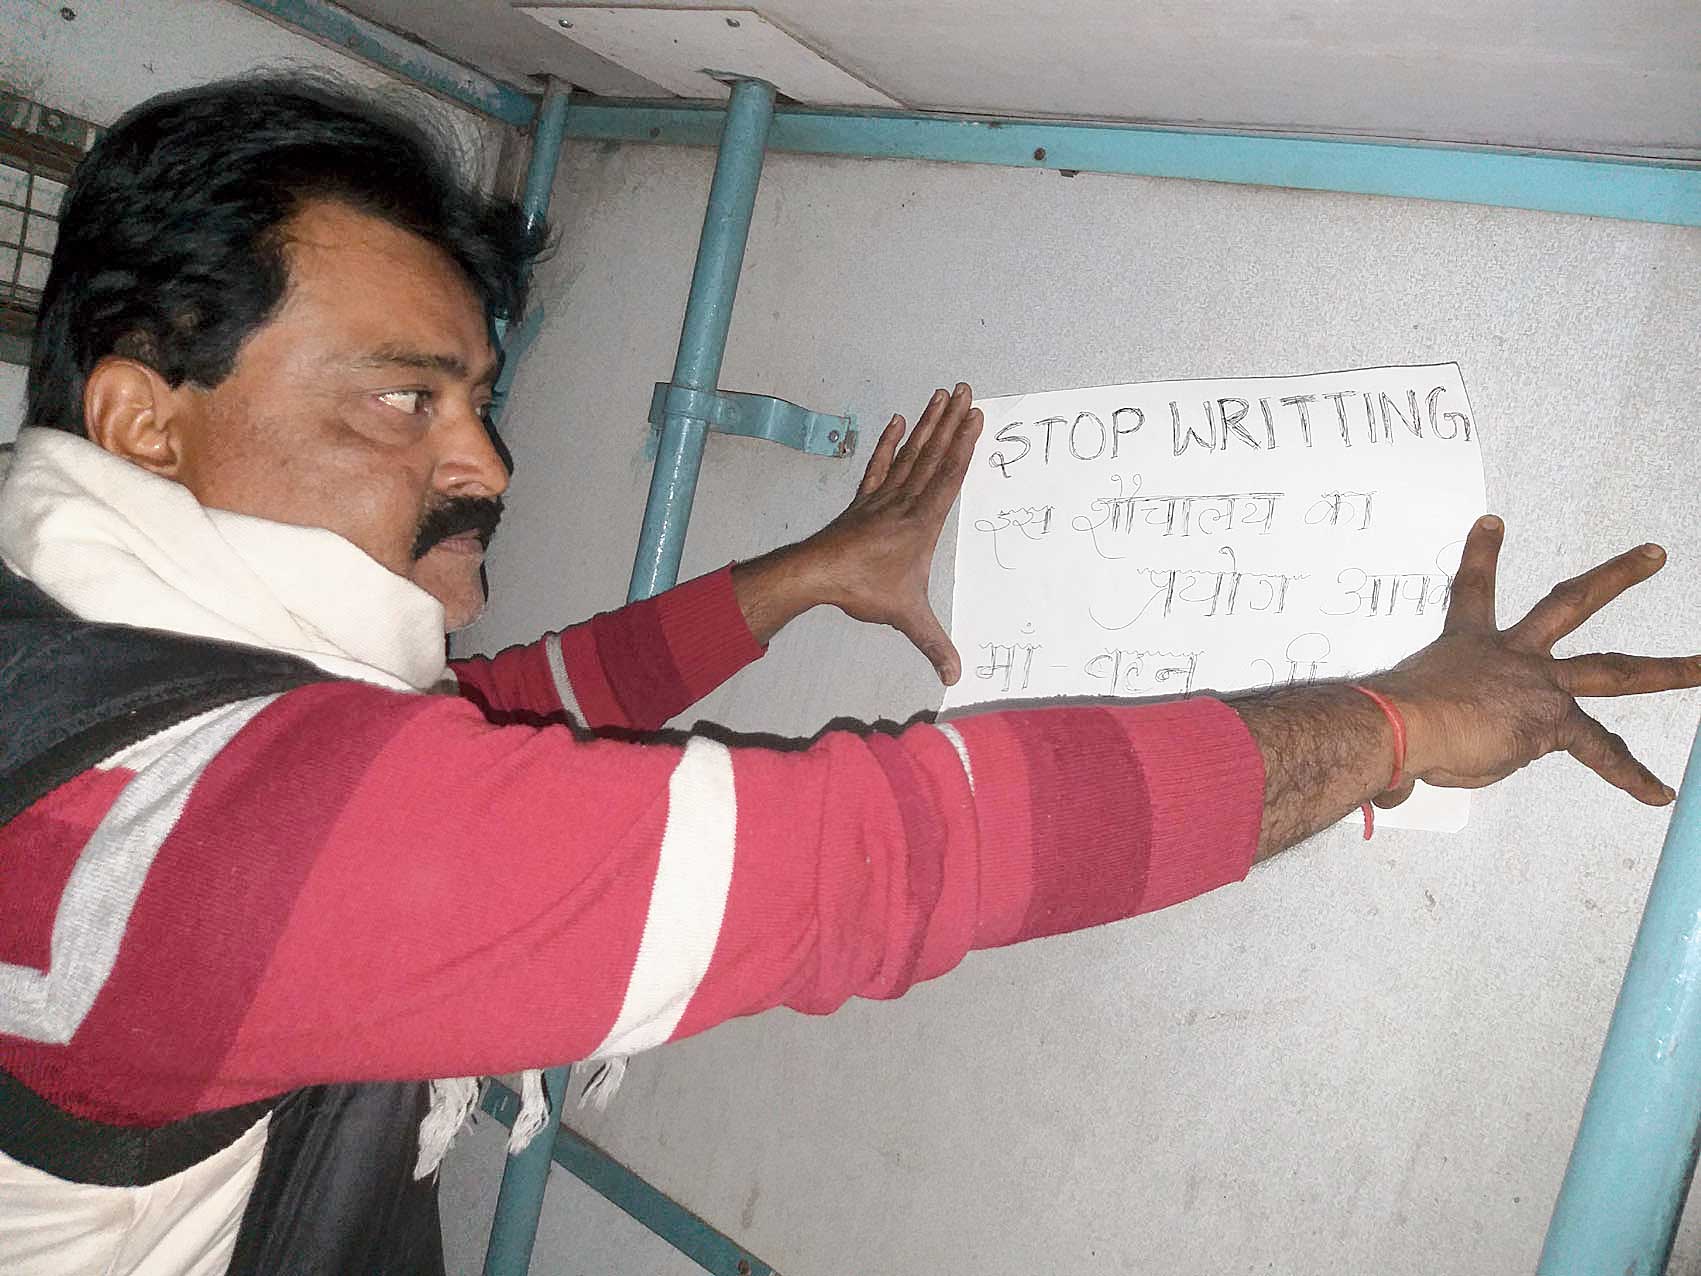 STOP WRITTING
इस शौचालय का
प्रयोग आपकी
मां - बहन भी